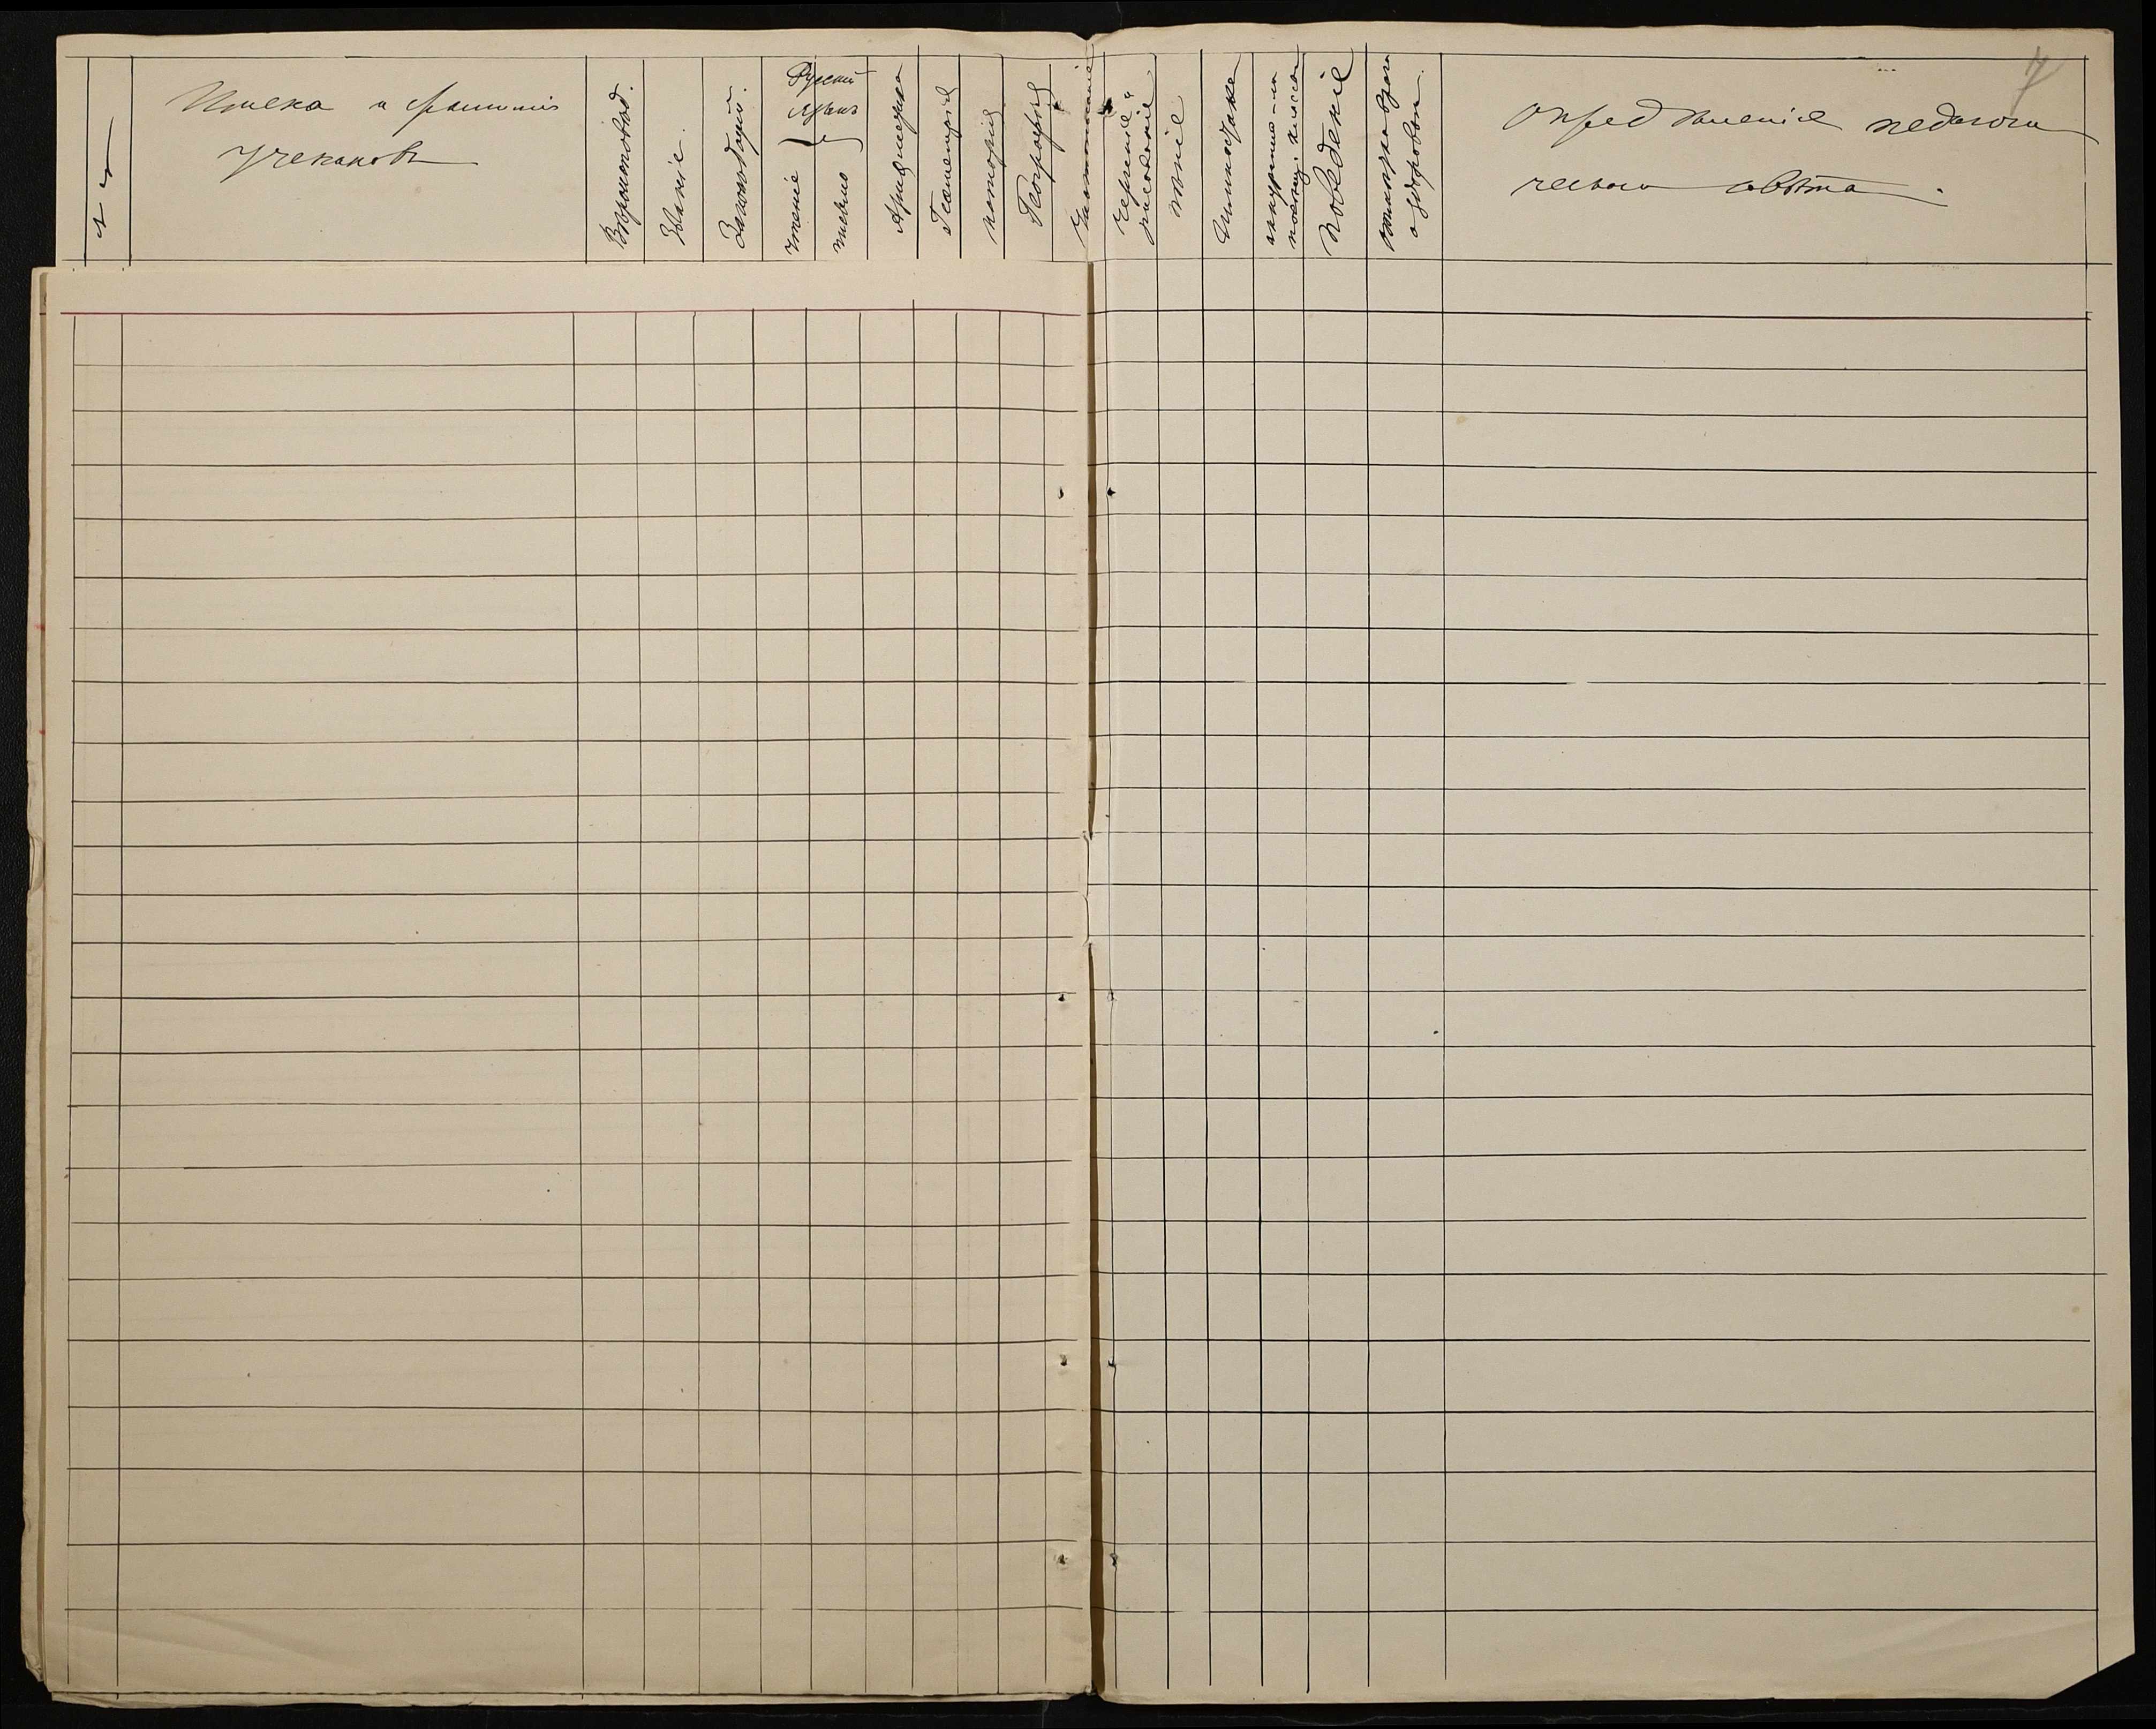 №
Имена и фамиліи
учениковъ
Вѣроисповѣд.
Званіе.
Законъ Божій.
Русскій
языкъ
чтеніе
письмо
Арифметика
Геометрія
исторія
Географія
Чистописаніе
черченіе и
рисованіе
пѣніе
Гимнастика
поведеніе
отмѣтка врача
о здоровьи
Опредѣленіе педагоги
ческаго совѣта.
7